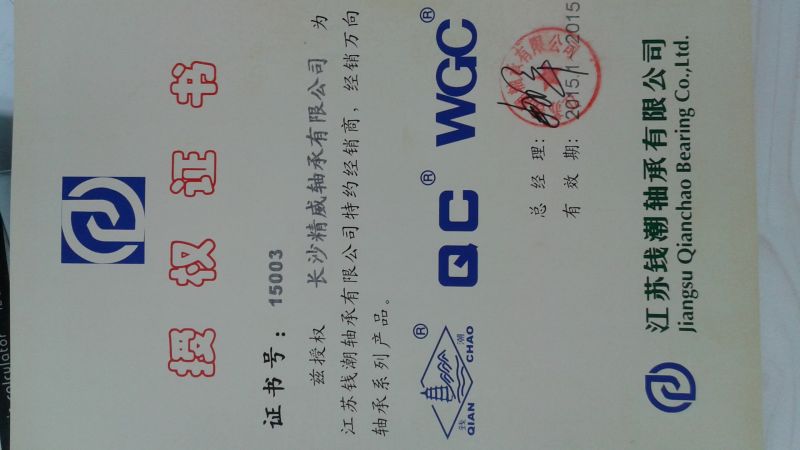 授权证书
证书号：15003
兹授权 长沙精威轴承有限公司 为
江苏钱潮轴承有限公司特约经销商，经销万向
轴承系列产品。
钱潮
QIAN CHAO ®
QC®
WGC®
总经理：
有效期：2015.1 2015
江苏钱潮轴承有限公司
Jiangsu Qianchao Bearing Co.,Ltd.
calculator